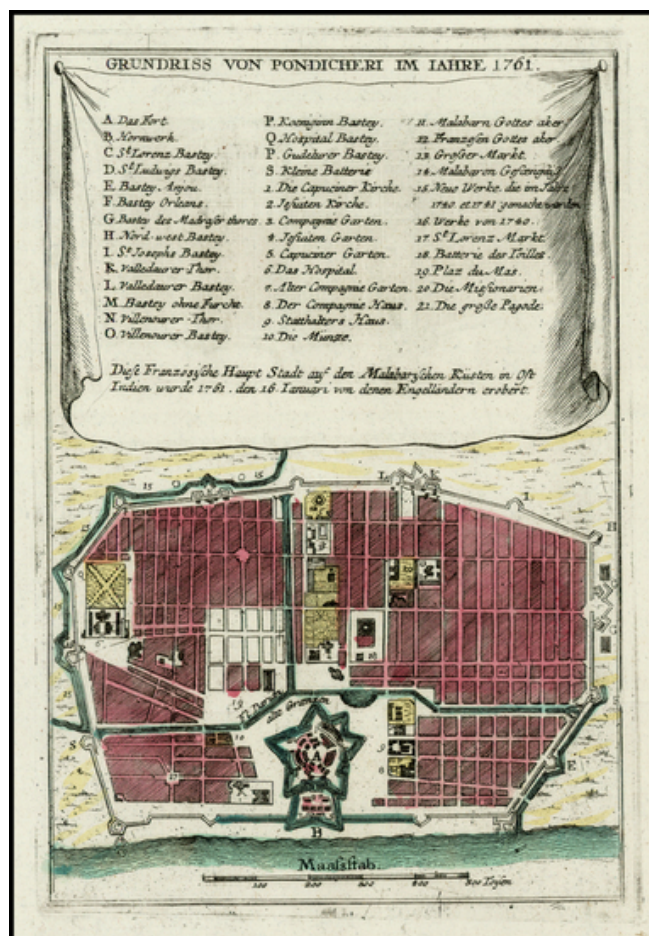 GRUNDRISS VON PONDICHERI IM IAHRE 1761.
A. Das Fort.
B. Hornwerk.
C. St Lorenz Bastey.
D. St Ludwigs Bastey.
E. Bastey Anjou.
F. Bastey Orleans.
G. Bastey des Madraser thores.
H. Nord-west Bastey.
I. St Josephs Bastey.
K. Valledaurer Thor.
L. Valledaurer Bastey.
M. Bastey ohne Furcht.
N. Villenourer Thor.
O. Villenourer Bastey.
P. Koeniginn Bastey.
Q. Hospital Bastey.
P. Gudelurer Bastey.
S. Kleine Batterie
1. Die Capuciner Kirche.
2. Jesuiten Kirche.
3. Compagnie Garten.
4. Jesuiten Garten.
5. Capuciner Garten.
6. Das Hospital.
7. Alter Compagnie Garten.
8. Der Compagnie Haus.
9. Statthalters Haus.
10. Die Münze.
11. Malabarn Gottes aker
12. Franzosen Gottes aker
13. Großer Markt.
14. Malabaren
15. Neue Werke die im Jahr
1740. et 1741 gemacht worden
16. Werke von 1740.
17. St Lorenz Markt.
18. Batterie des
19. Plaz du Mas.
20. Die Missionarien.
21. Die große Pagode.
Diese Französische Haupt Stadt auf den Malabarischen Küsten in Ost
Indien wurde 1761. den 16. Ianuari von denen Engelländern erobert.
15 15
L K
I
H
15
7
G
15
6
18
15
19
alte Grenzen
S
10
A
9
8
E
17
B
Maasstab.
100 200 300 400 500 Toysen